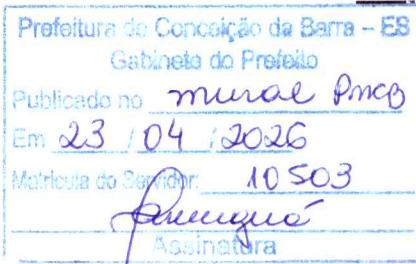 Prefeitura de Conceição da Barra – ES
Gabinete do Prefeito
Publicado no mural PMCB
Em 23 / 04 / 2026
Matrícula do Servidor: 10503
Assinatura